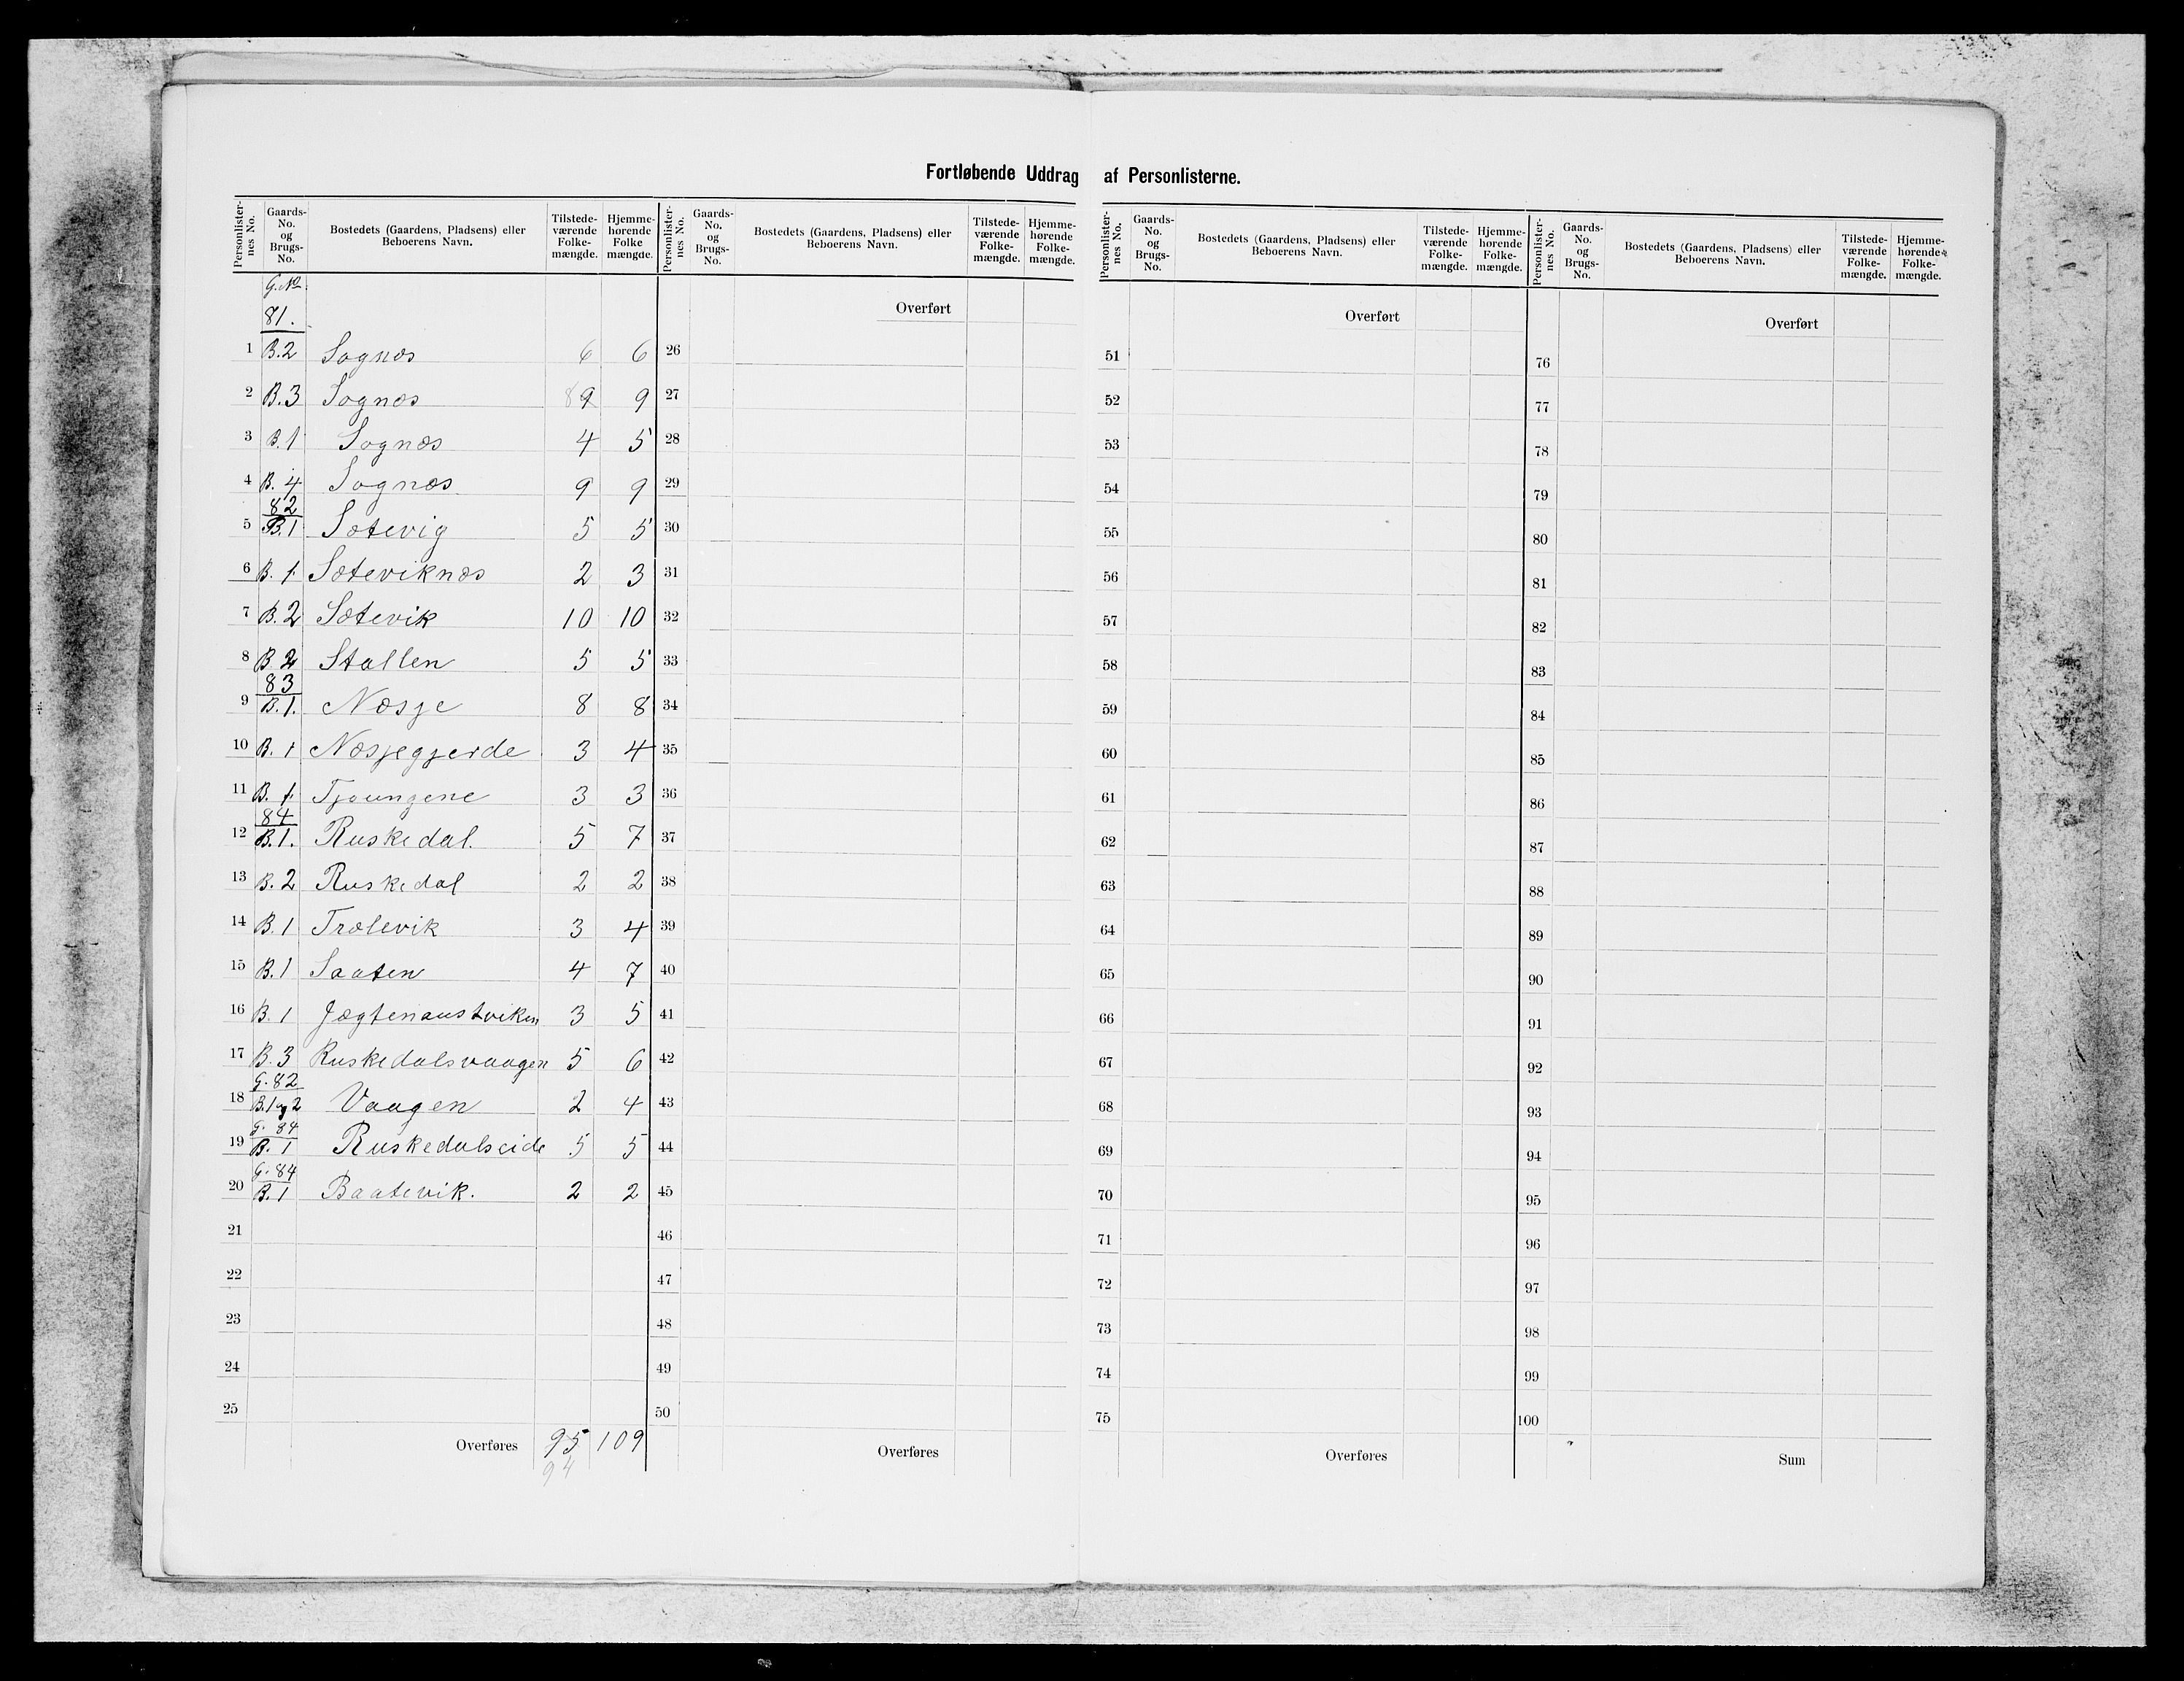 Fortløbende Uddrag af Personlisterne.
Personlister-nes No. | Gaards-No. og Brugs-No. | Bostedets (Gaardens, Pladsens) eller Beboerens Navn. | Tilstede-værende Folke-mængde. | Hjemme-hørende Folke mængde.
G. No
81.
1 B.2 Sognæs 6 6
2 B.3 Sognæs 8 9 9
3 B.1 Sognæs 4 5
4 B.4 Sognæs 9 9
82
5 B.1 Sætevig 5 5
6 B.1 Sæteviknæs 2 3
7 B.2 Sætevik 10 10
8 B.2 Stallen 5 5
83
9 B.1. Næsje 8 8
10 B.1 Næsjegjerde 3 4
11 B.1 Tjoungene 3 3
84
12 B.1. Ruskedal. 5 7
13 B.2 Ruskedal 2 2
14 B.1 Trælevik 3 4
15 B.1 Saaten 4 7
16 B.1 Jægtenaustviken 3 5
17 B.3 Ruskedalsvaagen 5 6
G.82
18 B.1 og 2 Vaagen 2 4
G. 84
19 B.1 Ruskedalseide 5 5
G.84
20 B.1 Baatevik. 2 2
21
22
23
24
25
Overføres 95 109
94
Personlister-nes No. | Gaards-No. og Brugs-No. | Bostedets (Gaardens, Pladsens) eller Beboerens Navn. | Tilstede-værende Folke-mængde. | Hjemme-hørende Folke-mængde.
Overført
26
27
28
29
30
31
32
33
34
35
36
37
38
39
40
41
42
43
44
45
46
47
48
49
50
Overføres
Personlister-nes No. | Gaards-No. og Brugs-No. | Bostedets (Gaardens, Pladsens) eller Beboerens Navn. | Tilstede-værende Folke-mængde. | Hjemme-hørende Folke-mængde.
Overført
51
52
53
54
55
56
57
58
59
60
61
62
63
64
65
66
67
68
69
70
71
72
73
74
75
Overføres
Personlister-nes No. | Gaards-No. og Brugs-No. | Bostedets (Gaardens, Pladsens) eller Beboerens Navn. | Tilstede-værende Folke-mængde. | Hjemme-hørende Folke-mængde.
Overført
76
77
78
79
80
81
82
83
84
85
86
87
88
89
90
91
92
93
94
95
96
97
98
99
100
Sum